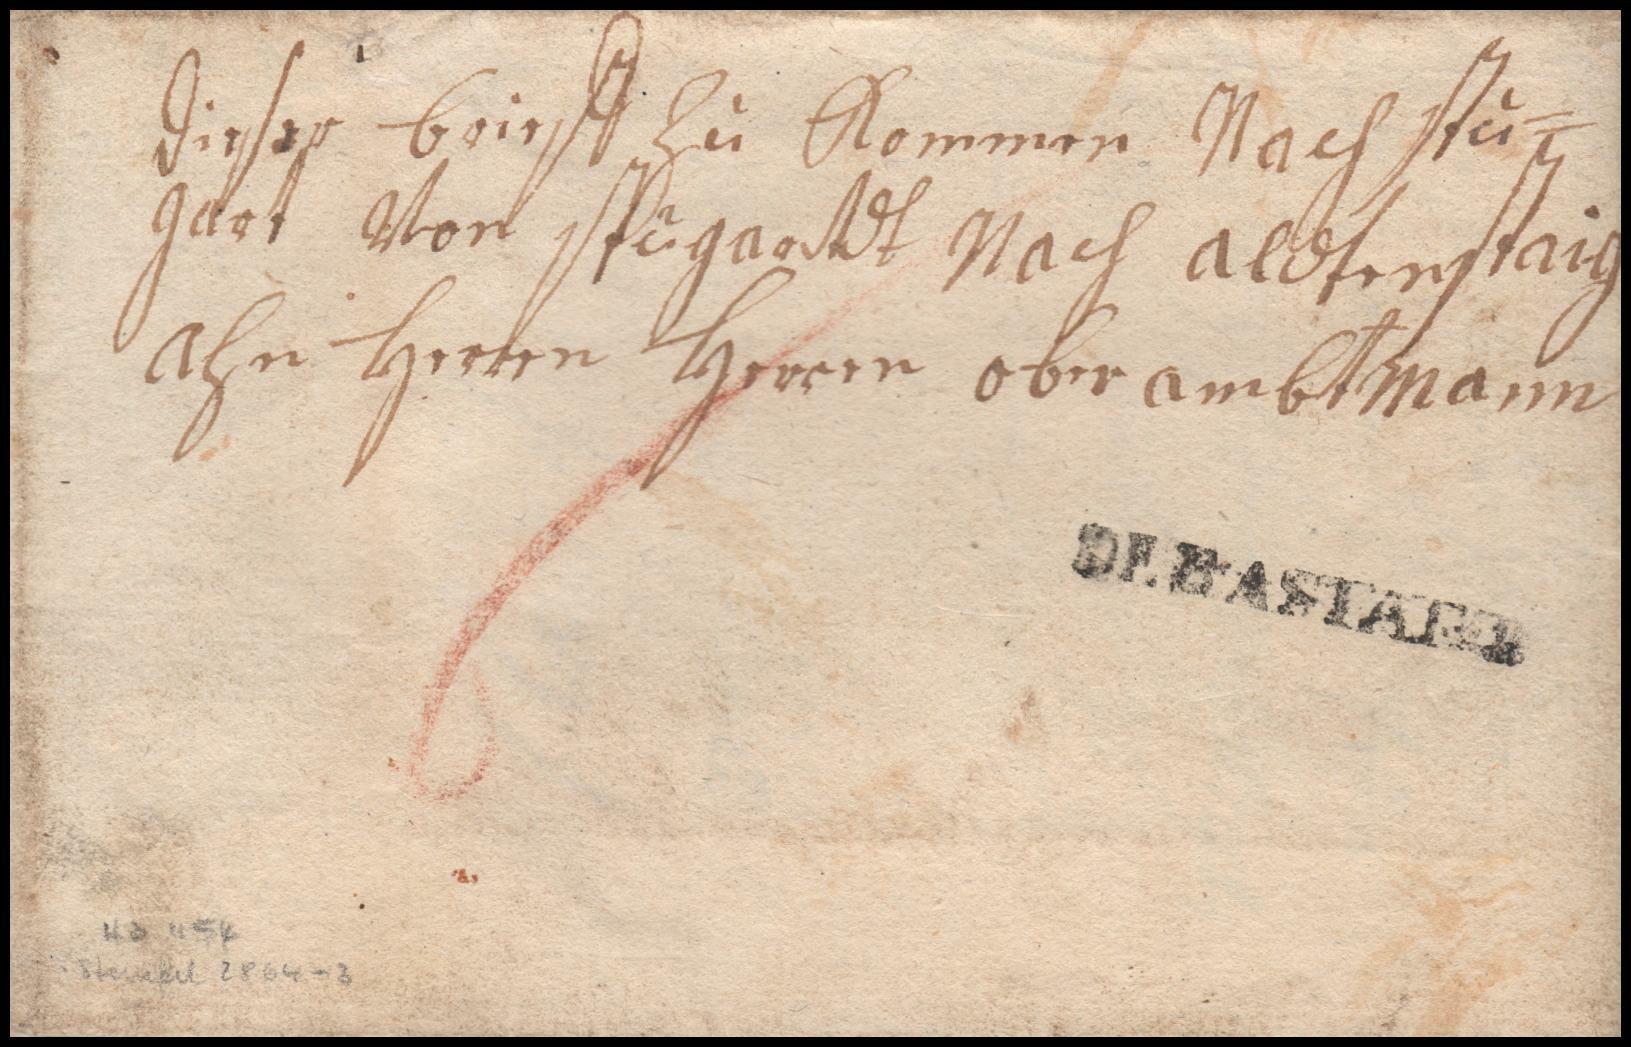 Dieser brieff zu Kommen Nach stu=
gart Von stugardt Nach aldtenstaig
ahn Herren Herren oberambtmann
DE.RASTADT
Stempel 2864-3